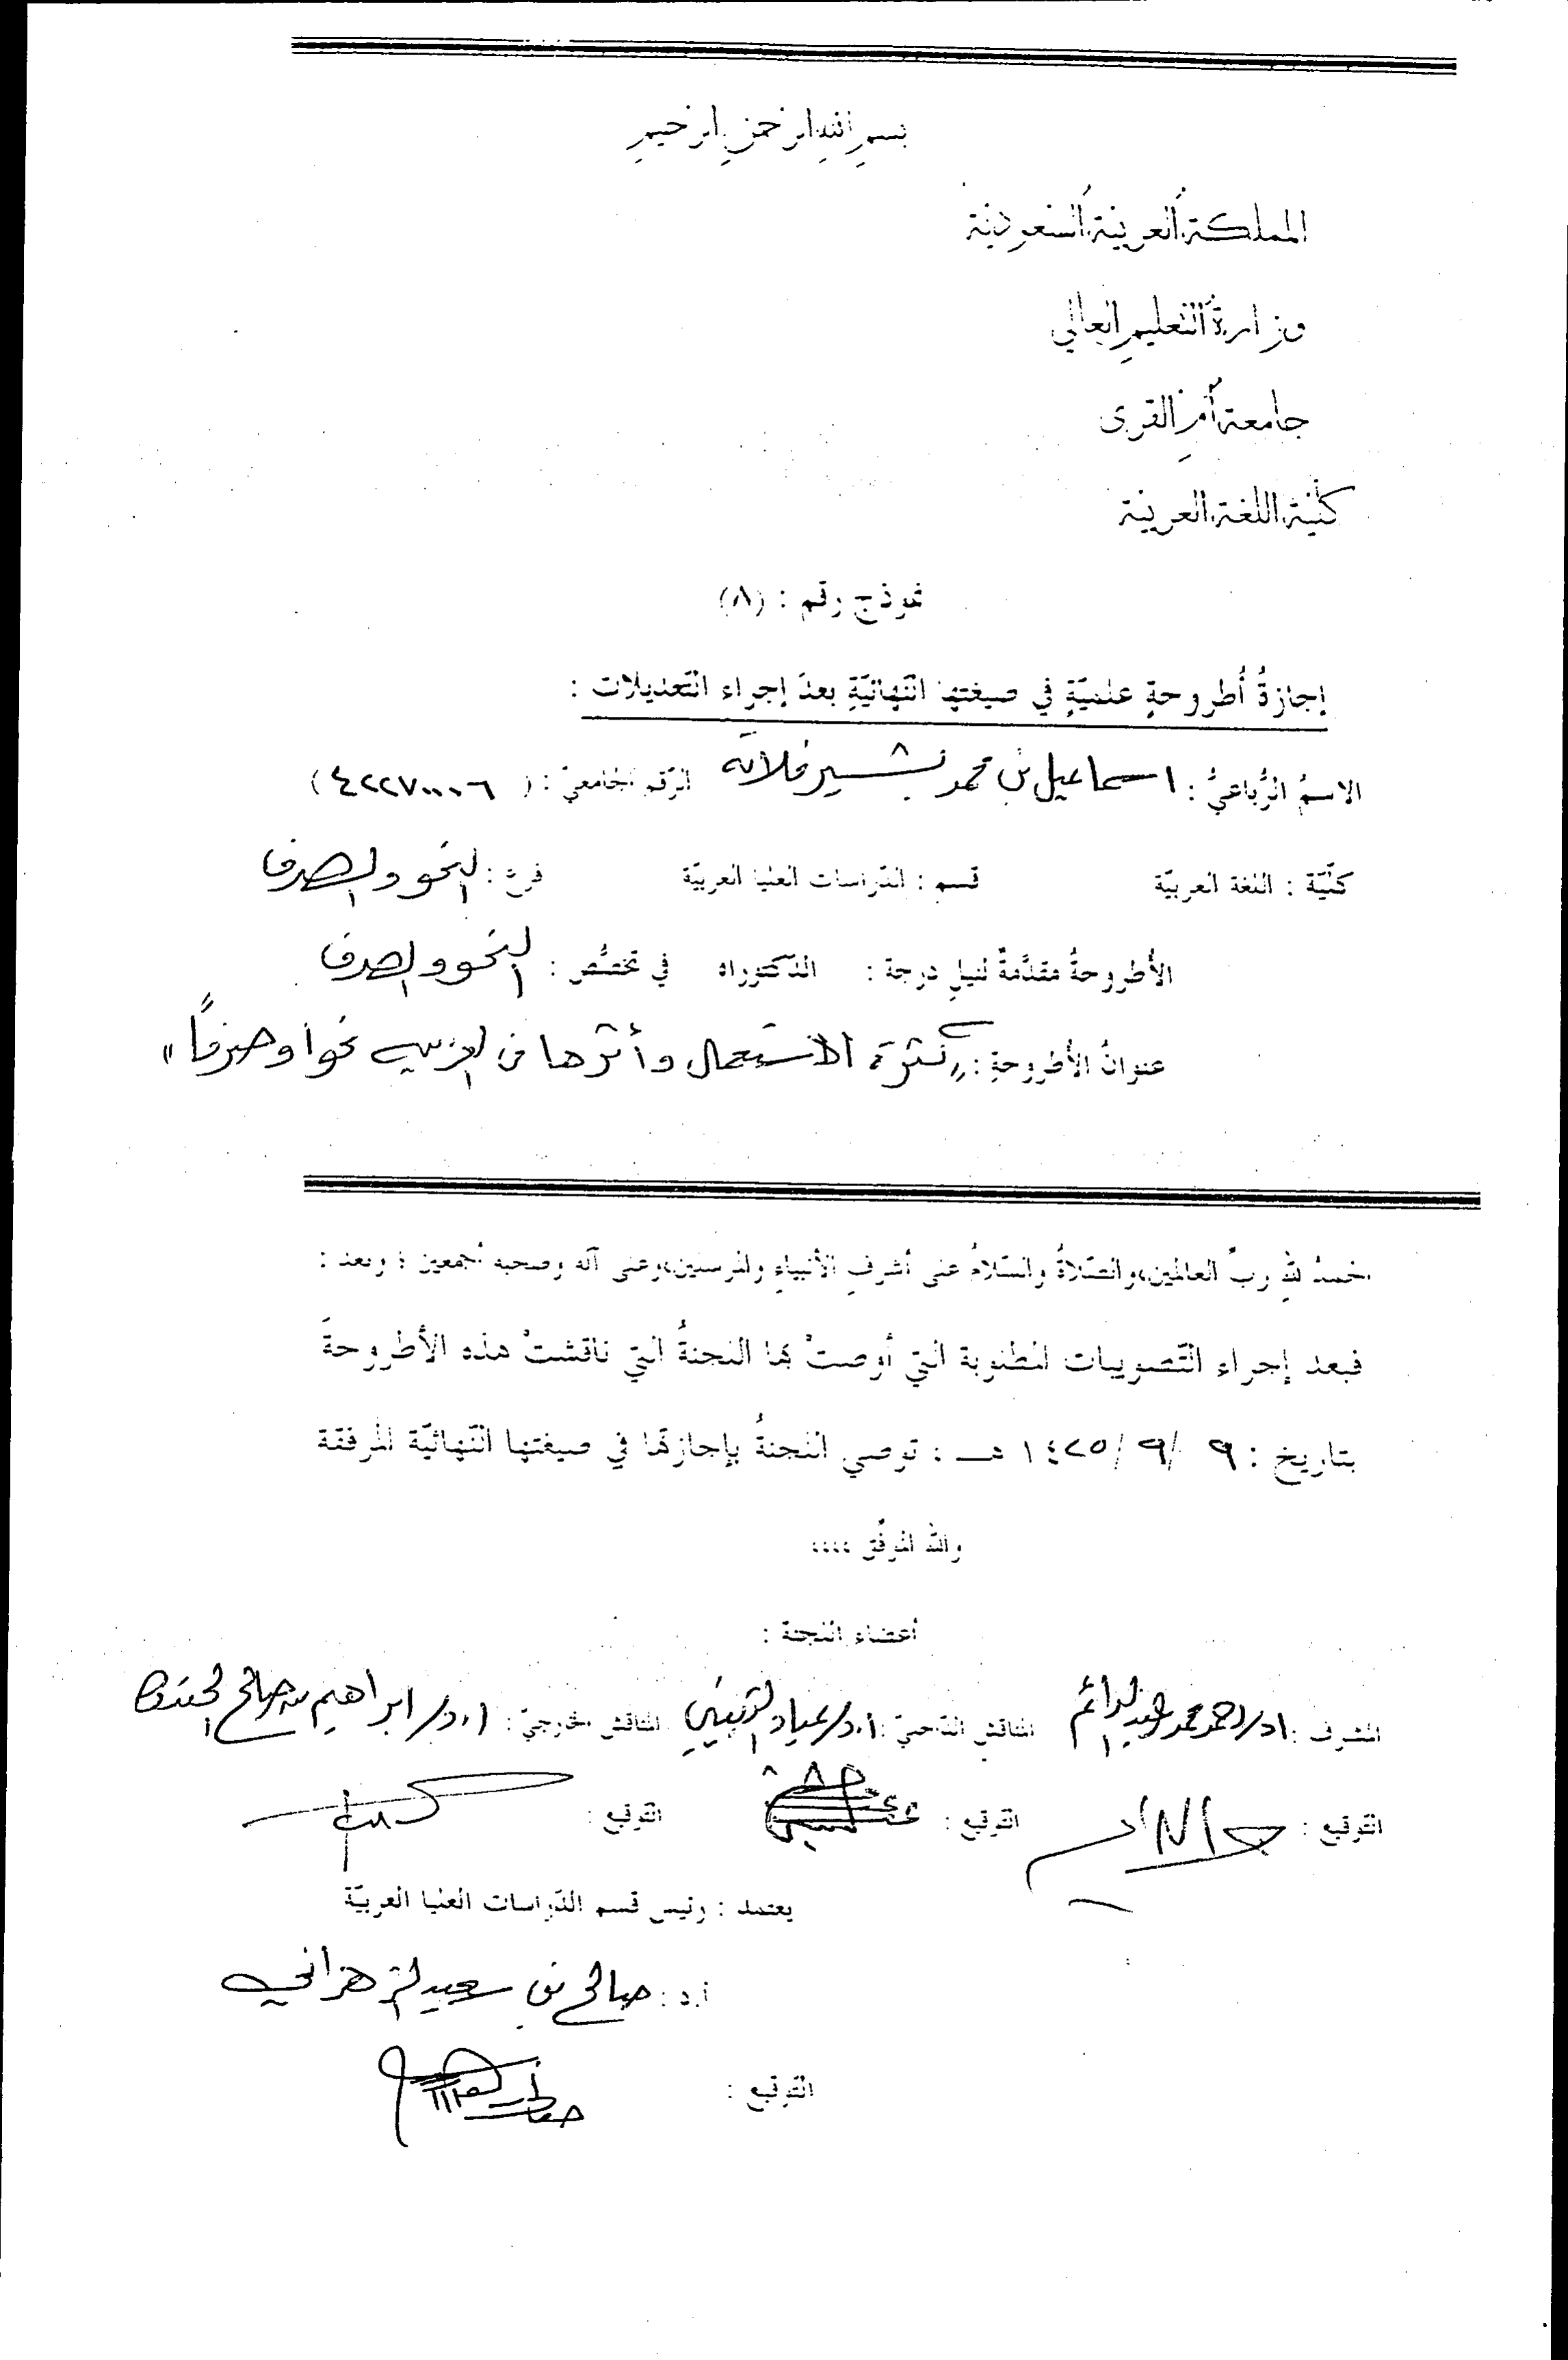 بسم الله الرحمن الرحيم
المملكة العربية السعودية
وزارة التعليم العالي
جامعة أم القرى
كلية اللغة العربية
نموذج رقم : (٨)
إجازةُ أُطروحةٍ علميّةٍ في صيغتها النّهائيّةِ بعدَ إجراء التّعديلات :
الاسمُ الرُّباعيُّ : اسماعيل بن محمد بشير فلاته الرّقم الجامعيّ : ( ٤٢٢٧٠٠٠٦ )
كلّيّة : اللغة العربيّة قسم : الدّراسات العليا العربيّة فرع : النحو والصرف
الأُطروحةُ مقدَّمةٌ لنيلِ درجة : الدّكتوراه في تخصُّص : النحو والصرف
عنوانُ الأُطروحةِ : « كثرة الاستعمال وأثرها في العربية نحواً وصرفاً »
الحمدُ للهِ ربِّ العالمين، والصّلاةُ والسّلامُ على أشرفِ الأنبياءِ والمرسلين، وعلى آله وصحبه أجمعين ؛ وبعد :
فبعد إجراء التّصويبات المطلوبة التي أوصتْ بها اللجنةُ التي ناقشتْ هذه الأُطروحةَ
بتاريخ : ٩ /٩ /١٤٢٥ هـ ؛ توصي اللجنةُ بإجازتها في صيغتها النّهائيّة المرفقة
والله الموفّق ،،،،
أعضاء اللجنة :
المشرف : ا.د/ احمد محمد عبد الدائم المناقش الدّاخليّ : أ.د/ عياد الثبيتي المناقش الخارجيّ : ا.د/ ابراهيم بن صالح الحندود
التوقيع : التوقيع : التوقيع :
يعتمد : رئيس قسم الدّراسات العليا العربيّة
أ.د : صالح بن سعيد الزهراني
التوقيع :